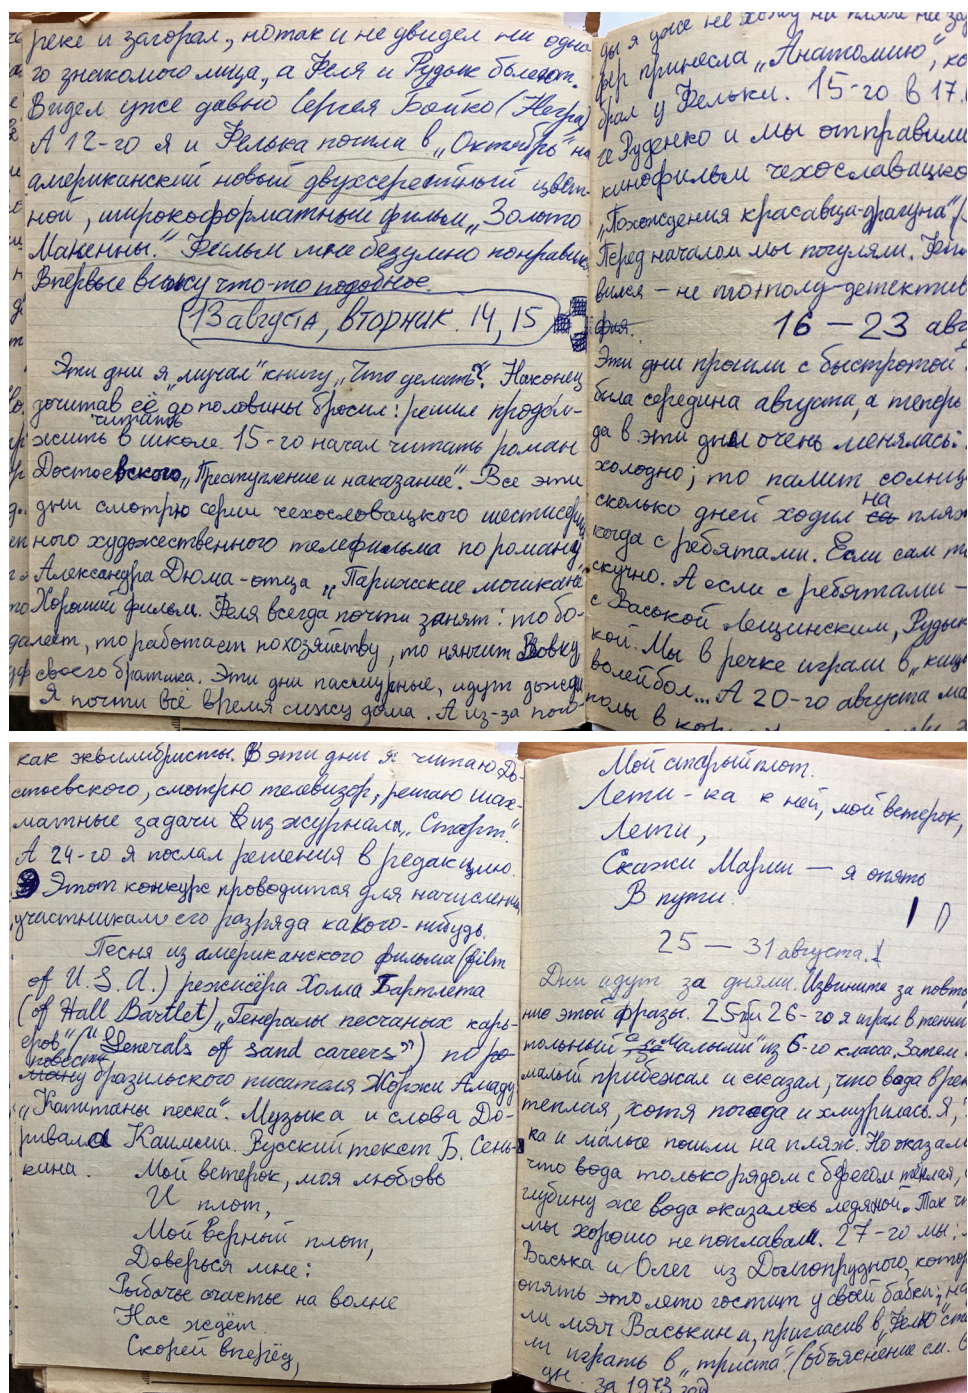 реке и загорал, но так и не двидел ни одно-
го знакомого лица, а Феля и Рудык болеют.
Видел уже давно Сергея Бойко (Негра)
А 12-го я и Фелька пошли в „Октябрь" на
американский новый двухсерейный цвет-
ной, широкоформатный фильм „Золото
Макенны." Фильм мне безумно понравился
Впервые вижу что-то подобное.
13 августа, вторник. 14, 15
Эти дни я „мучал" книгу „Что делать?". Наконец
дочитав её до половины бросил: решил продол-
читать
жить в школе. 15-го начал читать роман
Достоевского „Преступление и наказание". Все эти
дни смотрю серии чехословацкого шестисерий
ного художественного телефильма по роману
Александра Дюма-отца „Парижские могикане"
Хороший фильм. Феля всегда почти занят: то бо-
леет, то работает по хозяйству, то нянчит Вовку
своего братика. Эти дни пасмурные, идут дожди
Я почти всё время сижу дома. А из-за пого-
ды я уже не хожу на пляж ни за
фер принесла „Анатомию", ко
брал у Фельки. 15-го в 17.
Руденко и мы отправили
кинофильм чехословацко
„Похождения красавца-драгуна"
Перед началом мы погуляли. Фил
вился – не то полу-детектив
фия.
16 – 23 авг
Эти дни прошли с быстротой
была середина августа, а теперь
да в эти дни очень менялась:
холодно; то палит солнц
на
сколько дней ходил са пляж
когда с ребятами. Если сам то
скучно. А если с ребятами –
с Васькой Лещинским, Рудык
кой. Мы в речке играли в „
волейбол... А 20-го августа ма
полы в
как эквилибристы. В эти дни я читаю До-
стоевского, смотрю телевизор, решаю шах-
матные задачи из журнала „Старт".
А 24-го я послал решения в редакцию.
Этот конкурс проводится для начисления
участникам его разряда какого-нибудь.
Песня из американского фильма (film
of U.S.A.) режисёра Холла Бартлета
(of Hall Bartlet) „Генералы песчаных карь-
еров" („Generals of sand careers") по ро-
повести
ману бразильского писателя Жоржи Амаду
„Капитаны песка". Музыка и слова До-
ривала Каимми. Русский текст Б. Сень-
кина.
Мой ветерок, моя любовь
И плот,
Мой верный плот,
Доверься мне:
Рыбачье счастье на волне
Нас ждёт
Скорей вперёд,
Мой старый плот.
Лети-ка к ней, мой ветерок,
Лети,
Скажи Марии – я опять
В пути.
25 – 31 августа.
Дни идут за днями. Извините за повто
ние этой фразы. 25 и 26-го я играл в тенни
тольный с „малыми" из 6-го класса. Затем
малый прибежал и сказал, что вода в рек
теплая, хотя погода и хмурилась. Я,
ка и малые пошли на пляж. Но оказал
что вода только рядом с берегом тёплая,
глубину же вода оказалась ледяной. Так чт
мы хорошо не поплавали. 27-го мы:
Васька и Олег из Долгопрудного, котор
опять это лето гостит у своей бабки, на
ли мяч Васькин и, пригласив в „Фелю" ста
ли играть в „триста" (объяснение см. в
дн. за 1973 год